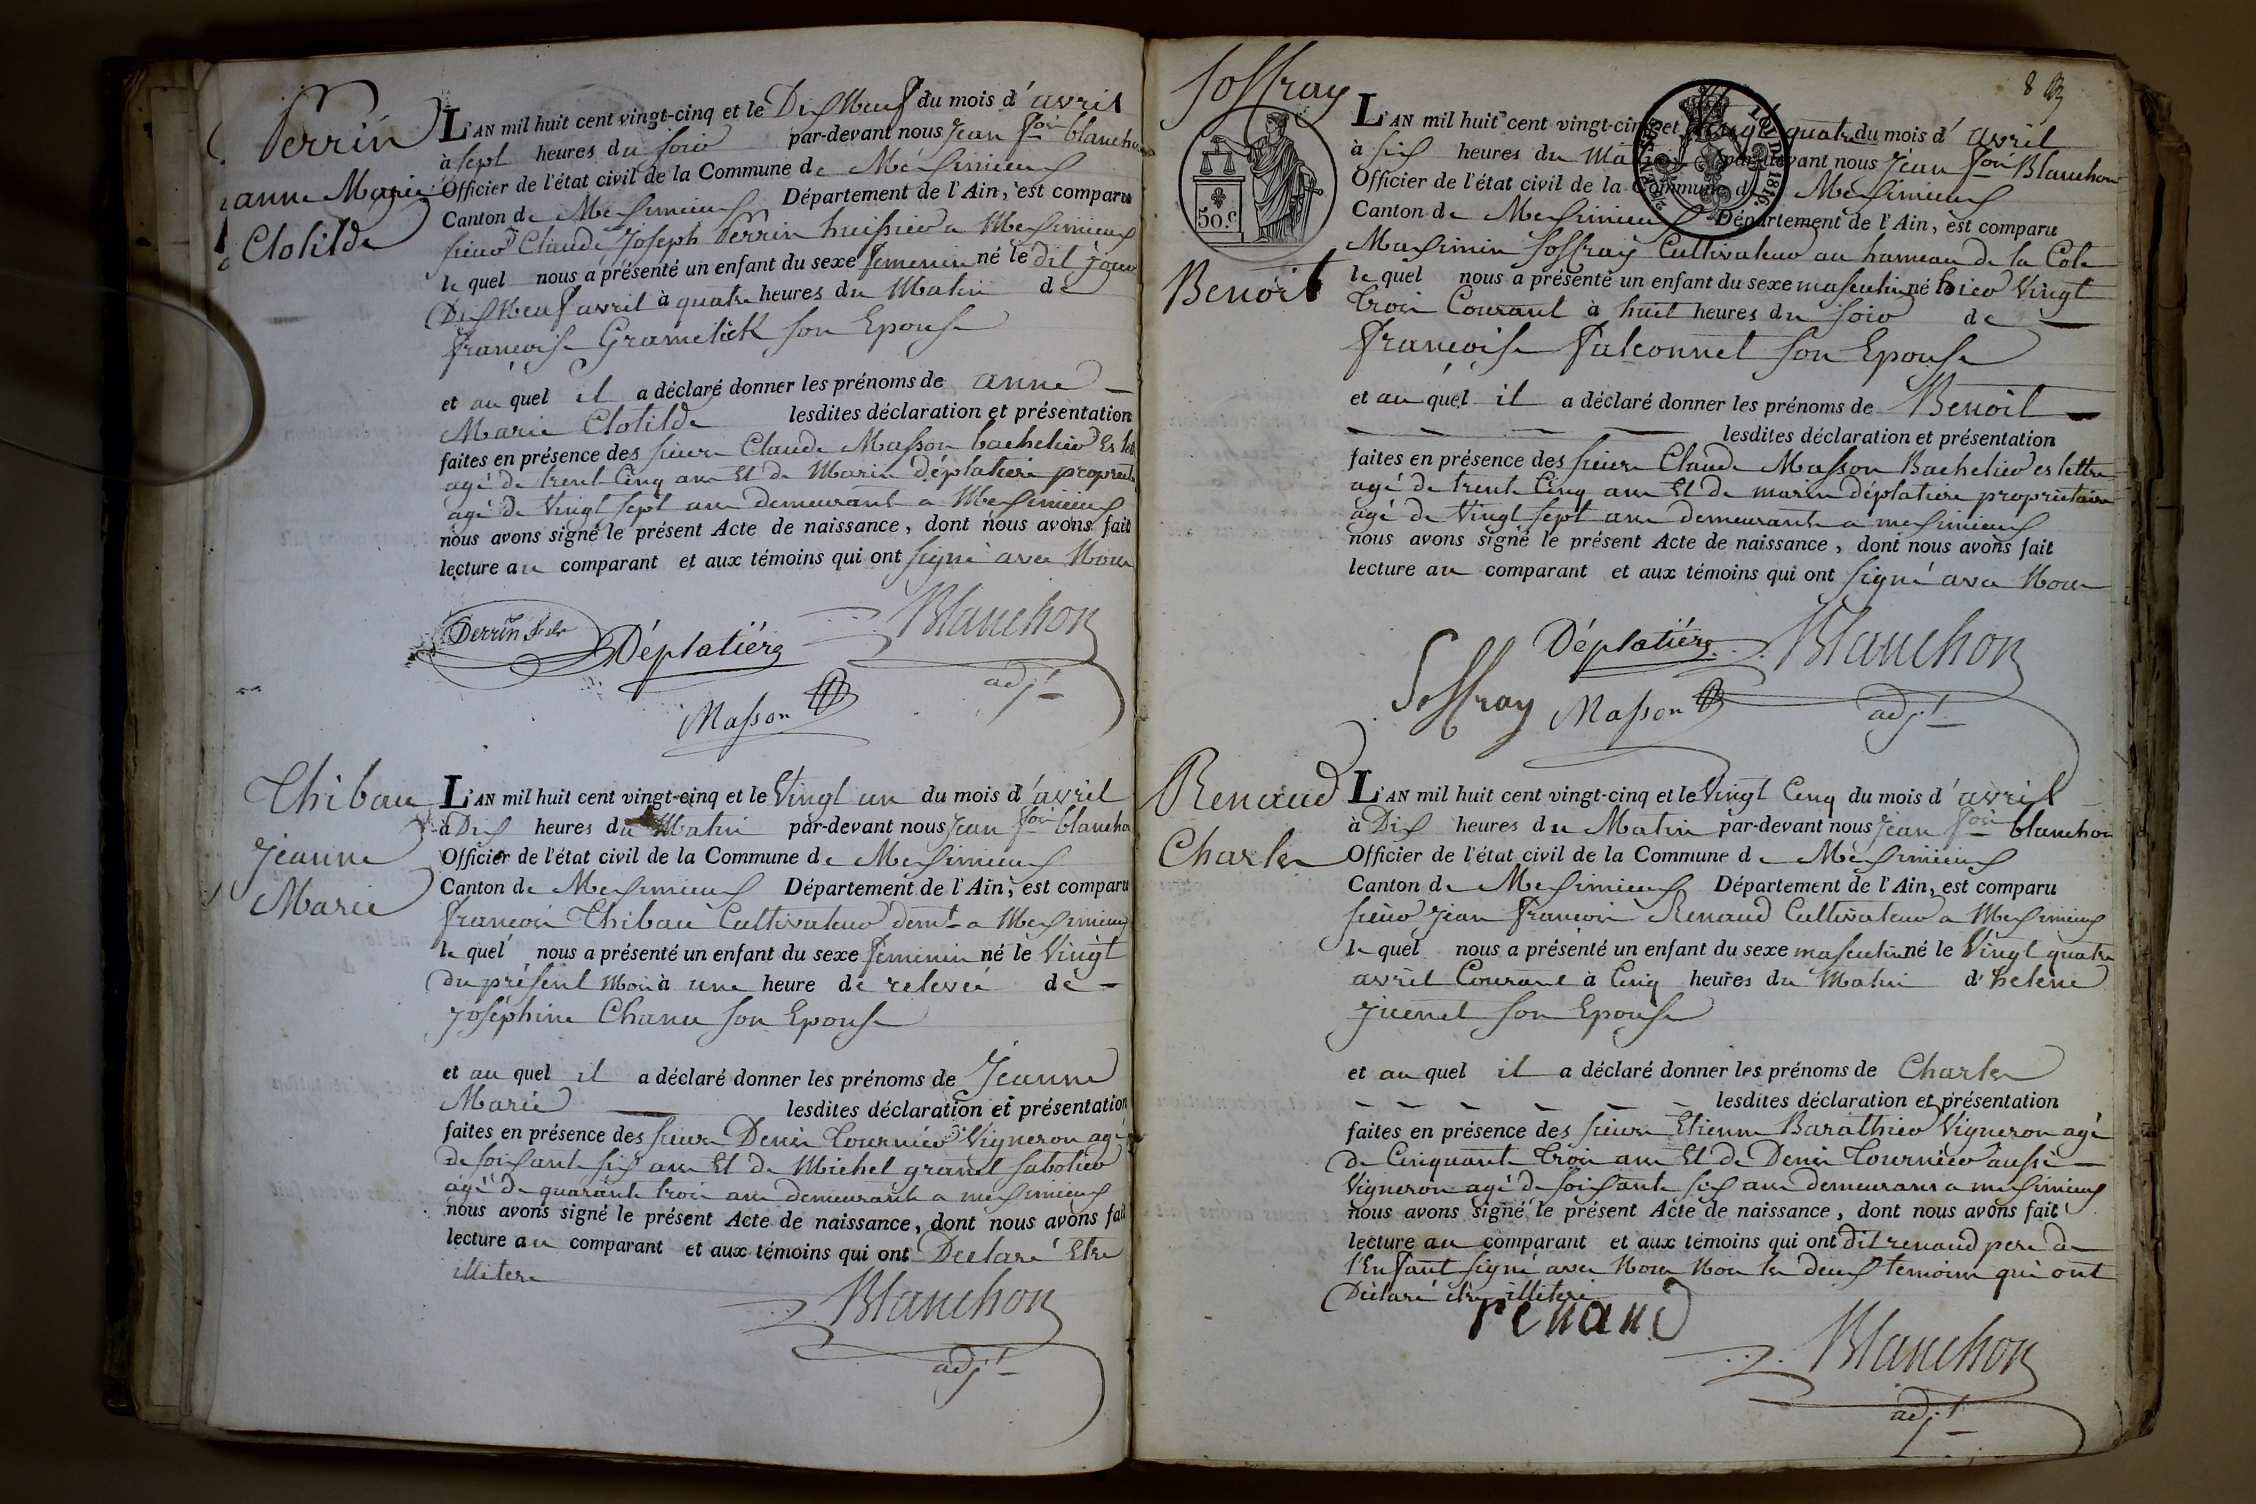 Perrin
anne Marie
Clotilde
L'AN mil huit cent vingt-cinq et le Dix Neuf du mois d'avril
à Sept heures du soir par-devant nous Jean foix blanchon
Officier de l'état civil de la Commune de Méximieux
Canton de Meximieux Département de l'Ain, est comparu
sieur Claude Joseph Perrin huissier a Meximieux
le quel nous a présenté un enfant du sexe feminin né le dit jour
Dix Neuf avril à quatre heures du Matin de
françoise Gramelick son Epouse
et au quel il a déclaré donner les prénoms de anne
Marie Clotilde lesdites déclaration et présentation
faites en présence des sieurs Claude Masson bachelier Es lett
agé de trent Cinq ans Et de Marin déplatiere propriet
agé de Vingt sept ans demeurant a Meximieux
nous avons signé le présent Acte de naissance, dont nous avons fait
lecture au comparant et aux témoins qui ont signé avec Nous
Perrin Déplatiére Blanchon
adjt
Masson
Thibau
Jeanne
Marie
L'AN mil huit cent vingt-cinq et le Vingt un du mois d'avril
à Dix heures du Matin par-devant nous Jean foix blanchon
Officier de l'état civil de la Commune de Meximieux
Canton de Meximieux Département de l'Ain, est comparu
françois Thibau Cultivateur demt a Meximieux
le quel nous a présenté un enfant du sexe feminin né le Vingt
du présent Mois à une heure de relevée de
Joséphine Chanu son Epouse
et au quel il a déclaré donner les prénoms de Jeanne
Marie lesdites déclaration et présentation
faites en présence des sieurs Denis Tournier Vigneron agé
de soixante six ans Et de Michel grand sabotier
agé de quarante trois ans demeurants a meximieux
nous avons signé le présent Acte de naissance, dont nous avons fait
lecture au comparant et aux témoins qui ont Déclaré Etre
illitere
Blanchon
adjt
Soffray
8
50.c
LOI DE 1816.
Benoit
L'AN mil huit cent vingt-cinq et vingt quatre du mois d'avril
à six heures du Matin par-devant nous Jean foix Blanchon
Officier de l'état civil de la Commune d Meximieux
Canton de Meximieux Département de l'Ain, est comparu
Maximin Soffray Cultivateur au hameau de la Cote
le quel nous a présenté un enfant du sexe masculin né hier Vingt
trois Courant à huit heures du soir de
françoise falconnet son Epouse
et au quel il a déclaré donner les prénoms de Benoit
lesdites déclaration et présentation
faites en présence des sieurs Claude Masson Bachelier es lettre
agé de trente Cinq ans Et de marin déplatiere propriétaire
agé de Vingt sept ans demeurants a meximieux
nous avons signé le présent Acte de naissance, dont nous avons fait
lecture au comparant et aux témoins qui ont signé avec Nous
Déplatiére Blanchon
Soffray Masson adjt
Renaud
Charles
L'AN mil huit cent vingt-cinq et le Vingt Cinq du mois d'avril
à Dix heures du Matin par-devant nous Jean foix blanchon
Officier de l'état civil de la Commune de Méximieux
Canton de Meximieux Département de l'Ain, est comparu
sieur Jean françois Renaud Cultivateur a Meximieux
le quel nous a présenté un enfant du sexe masculin né le Vingt quatre
avril Courant à Cinq heures du Matin d'helene
Juenet son Epouse
et au quel il a déclaré donner les prénoms de Charles
lesdites déclaration et présentation
faites en présence des sieurs Etienne Barathier Vigneron agé
de Cinquante trois ans Et de Denis Tournier aussi
Vigneron agé de soixante six ans demeurans a meximieux
nous avons signé le présent Acte de naissance, dont nous avons fait
lecture au comparant et aux témoins qui ont dit renaud pere de
l'Enfant signe avec Nous Non les deux temoins qui ont
Déclaré être illitere
renaud
Blanchon
adjt